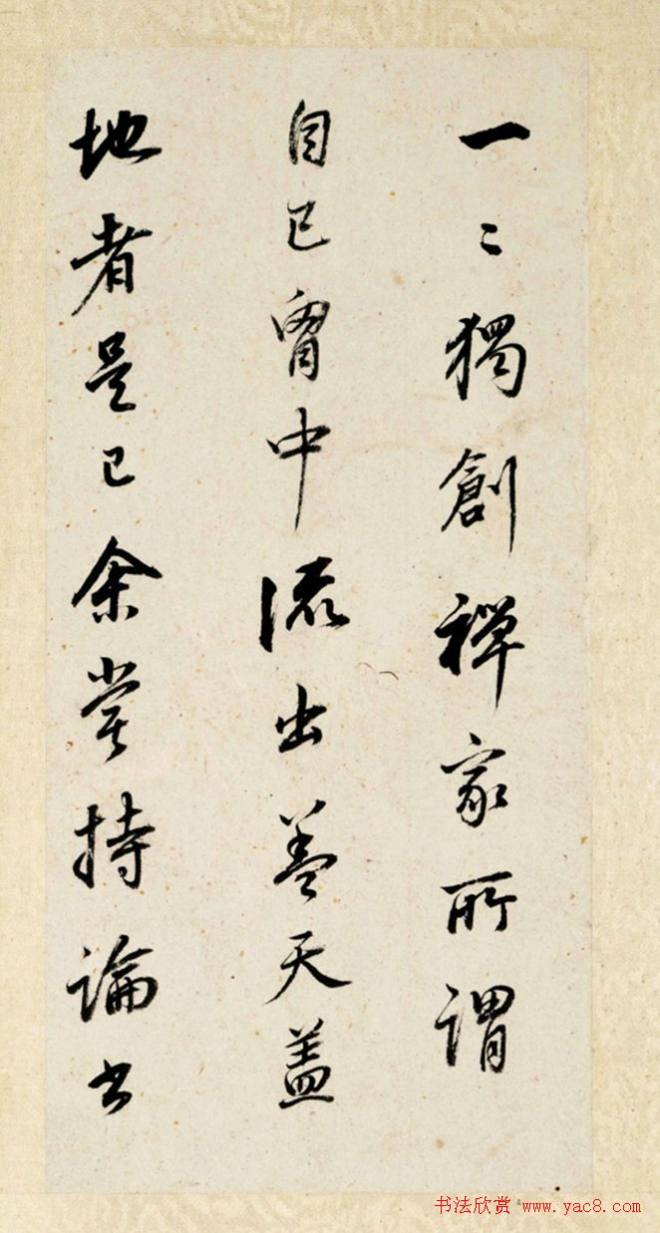 一〻獨創禪家所謂
自己胷中流出盖天盖
地者是已余嘗持論書
书法欣赏 www.yac8.com